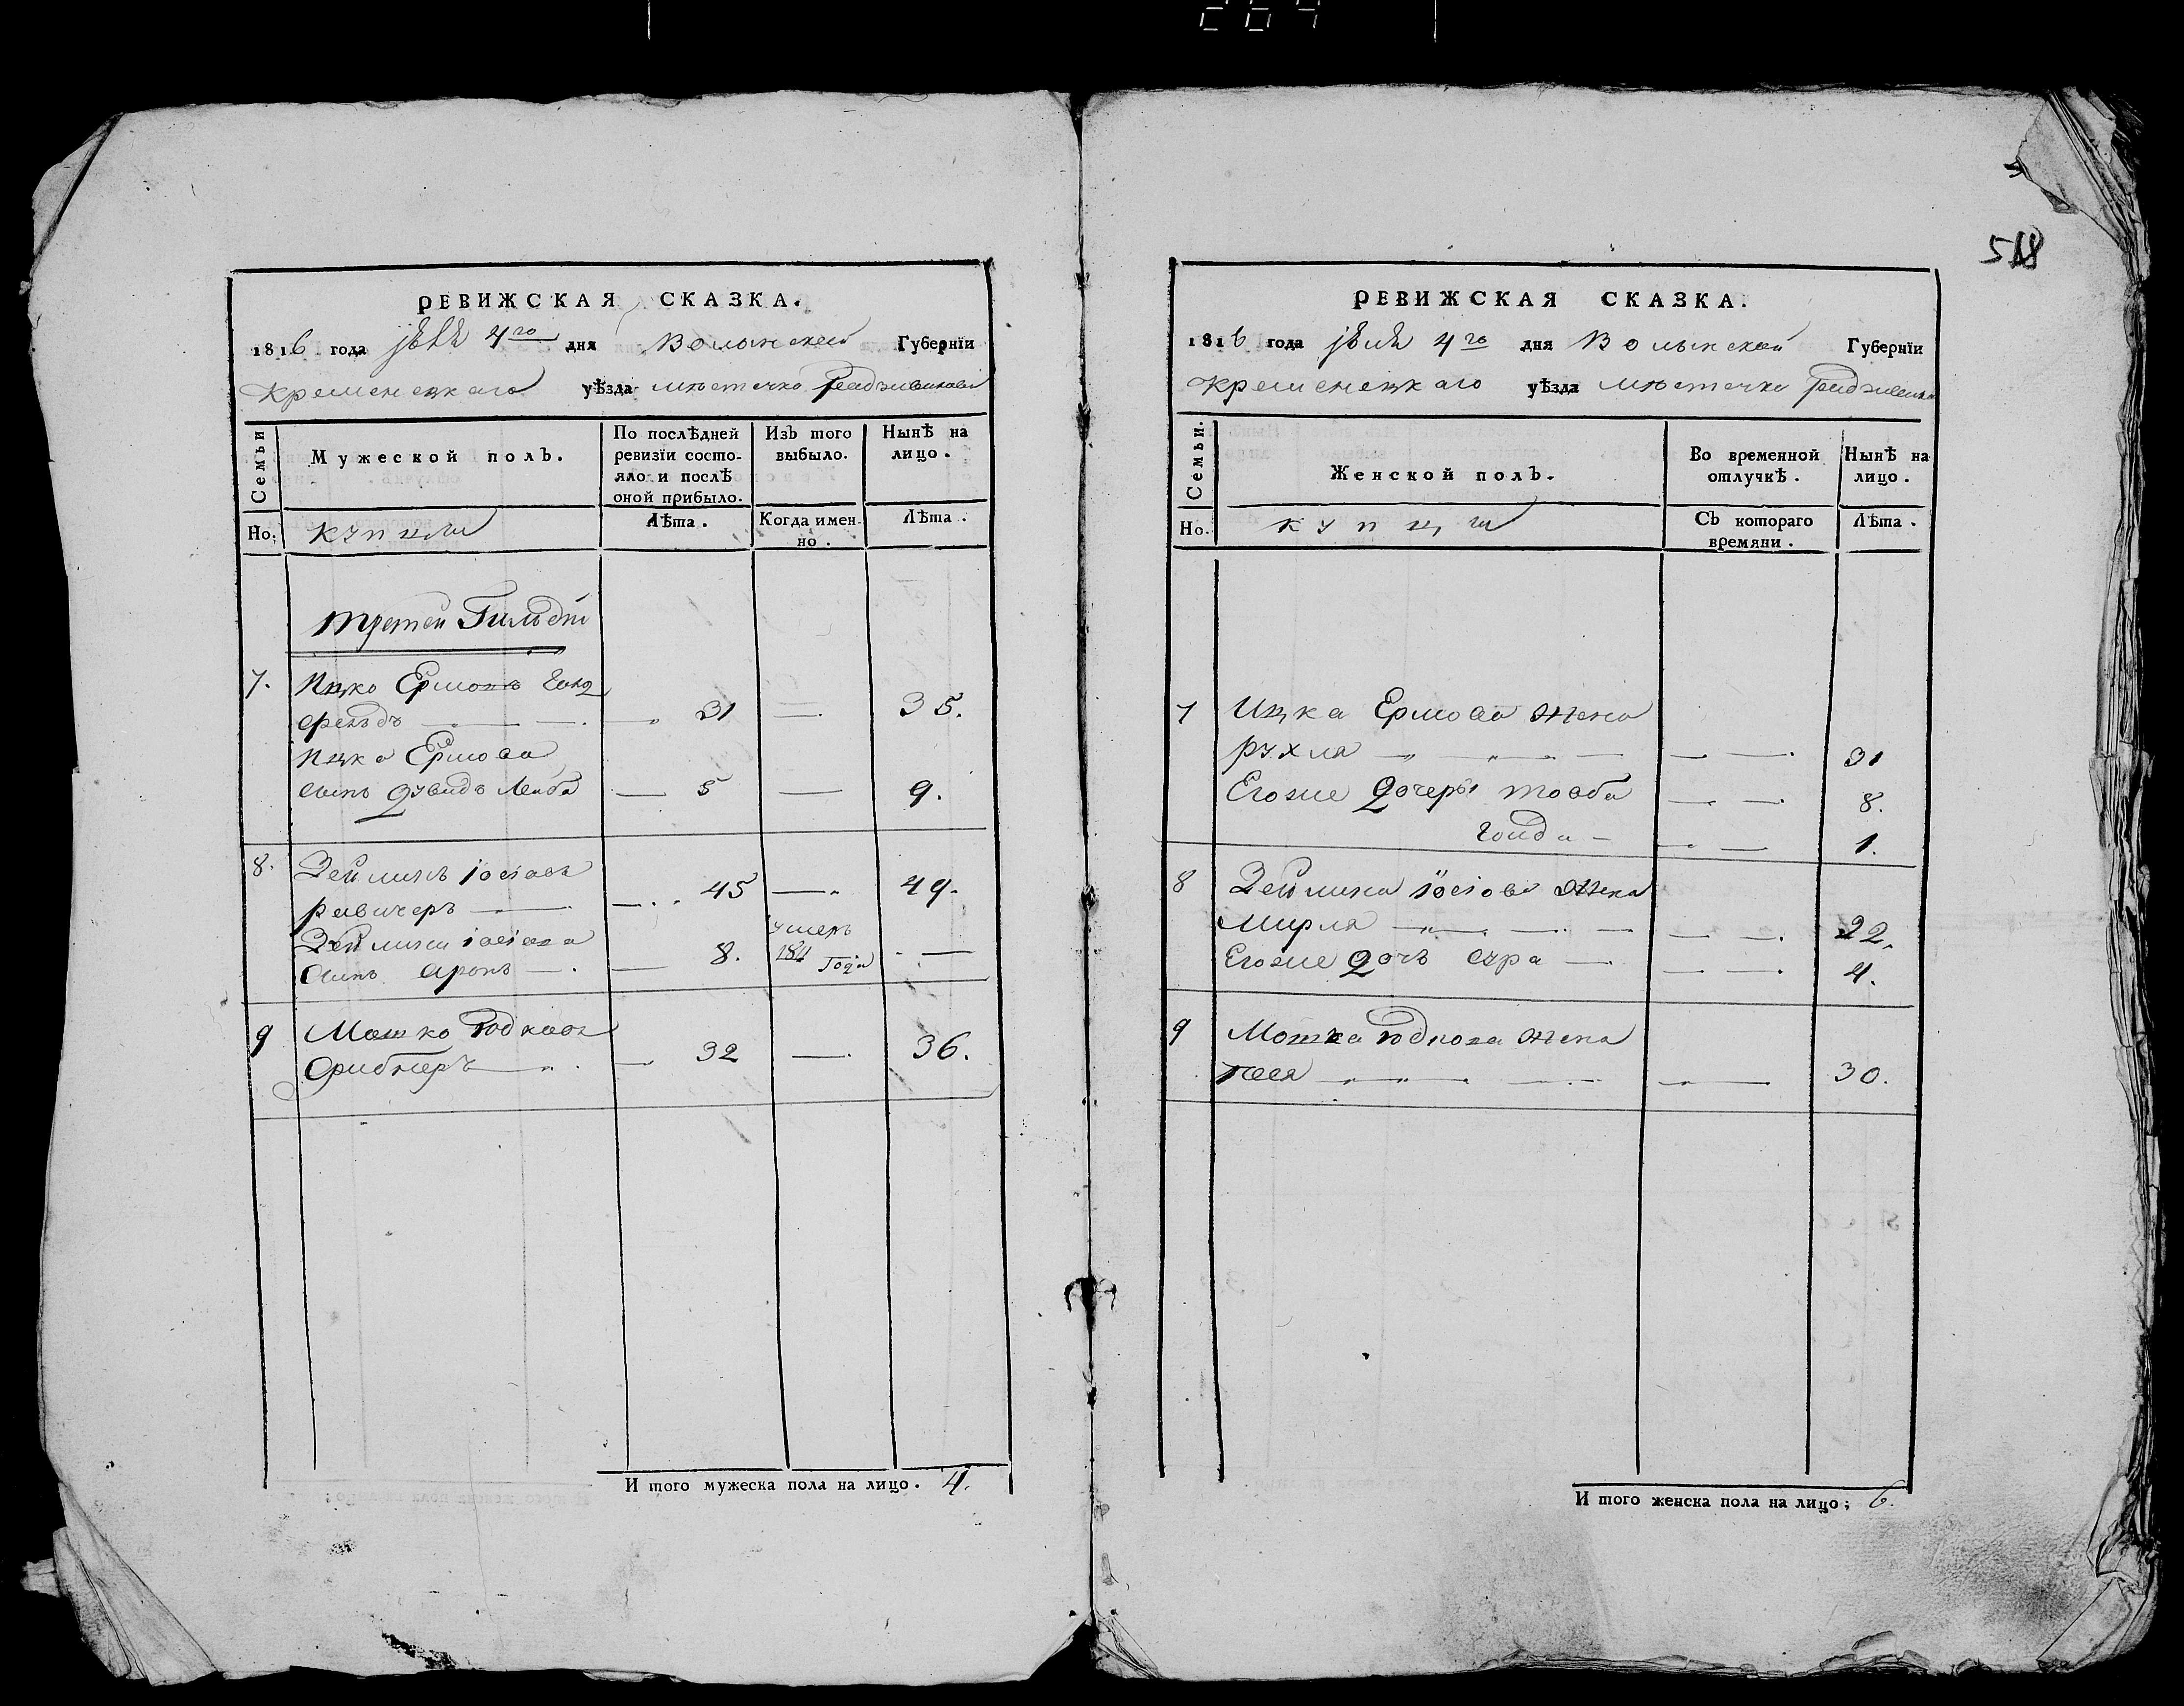 264
518
РЕВИЖСКАЯ СКАЗКА.
1816 года 4го дня Волынской Губернїи
Кременецкаго уѣзда местечка Радзивилова
Семьи
Мужеской полъ.
По послѣдней ревизїи состо-
яло и послѣ оной прибыло.
Изъ того выбыло.
Нынѣ на лицо.
Но.
Купцы
Лѣта.
Когда имен-
но.
Лѣта.
третей Гильдіи
7. Ицко Ермовъ
31 — 35.
Ицка Ермова
сынъ Дувидъ Лейба — 5 — 9.
8. Зейлинъ Іосіовъ
45 — 49.
Зейлина Іосіова
сынъ Аронъ — 8. умеръ 1811 года —
9 Мошко Юдковъ
32 — 36.
И того мужеска пола на лицо. 4.
РЕВИЖСКАЯ СКАЗКА.
1816 года 4го дня Волынской Губернїи
Кременецкаго уѣзда местечка
Семьи.
Женской полъ.
Во временной отлучкѣ.
Нынѣ на лицо.
Но.
купцы
Съ котораго времяни.
Лѣта.
7 Ицка Ермова жена
Рухля — — 31
Егоже дочеры Товба — 8.
Гольда — — 1.
8 Зейлина Іосіова жена
Мирля — — 22.
Егоже дочъ Сура — — 4.
9 Мошка Юдкова жена
Песя — — 30.
И того женска пола на лицо; 6.